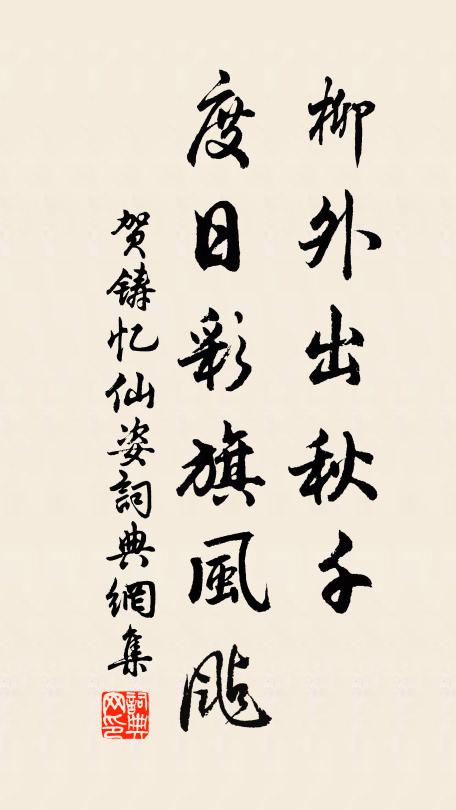 柳外出秋千
度日彩旗風颭
贺鑄忆仙姿詞典網集
詞典网印